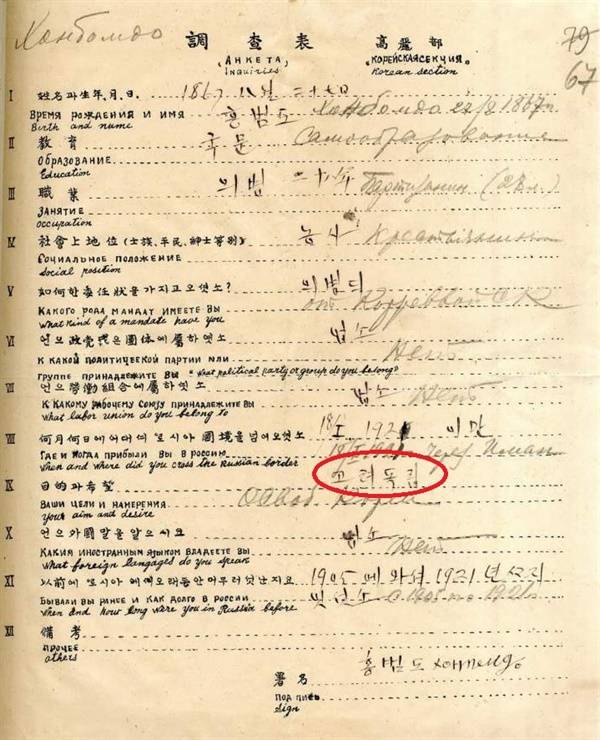 調査表 高麗部
(АНКЕТА) КОРЕЙСКАЯ СЕКЦИЯ
Inquiries Korean section
67
I 姓名과生年,月,日.
홍범도
ВРЕМЯ РОЖДЕНИЯ И ИМЯ
Birth and name
II 教育 국문 Самообразование
ОБРАЗОВАНИЕ
Education
III 職業 의병
ЗАНЯТИЕ
occupation
IV 社會上地位(士族,平民,紳士等別) 농사 Крестьянин
СОЦИАЛЬНОЕ ПОЛОЖЕНИЕ
Social position
V 如何한委任狀을가지고오셧소?
КАКОГО РОДА МАНДАТ ИМЕЕТЕ ВЫ
what kind of a mandate have you
VI 언으政党或은團体에屬하엿소 업소 Нет
К КАКОЙ ПОЛИТИЧЕСКОЙ ПАРТИИ ИЛИ
ГРУППЕ ПРИНАДЛЕЖИТЕ ВЫ "what political party or group do you belong?
VII 언으勞働組合에屬하엿소 업소 Нет
К КАКОМУ РАБОЧЕМУ СОЮЗУ ПРИНАДЛЕЖИТЕ ВЫ
What labor union do you belong to
VIII 何月何日에어대여로시아國境을넘어오셧소 1921 이만
ГДЕ И КОГДА ПРИБЫЛИ ВЫ В РОССИЮ Через Иман
when and where did you cross the Russian border
IX 目的과希望 고려독립
ВАШИ ЦЕЛИ И НАМЕРЕНИЯ
Your aim and desire
X 언으外國말을알으시오 업소 Нет
КАКИМ ИНОСТРАННЫМ ЯЗЫКОМ ВЛАДЕЕТЕ ВЫ
What foreign langages do you speak
XI 以前에로시아에예오래동안머무러섯난지요 1905 에와셔 1921 년
БЫВАЛИ ВЫ РАНЕЕ И КАК ДОЛГО В РОССИИ
when and how long were you in Russia before
XII 備考
ПРОЧЕЕ
others
홍범도
署名
ПОДПИСЬ
Sign